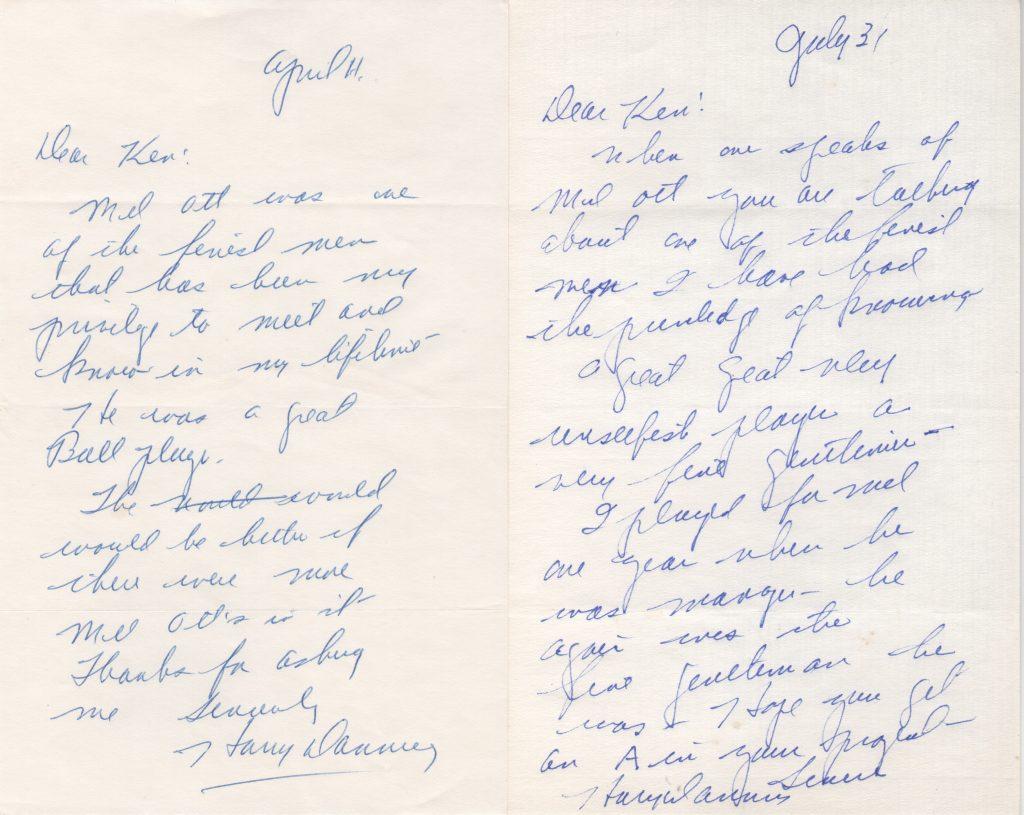 April 11.
Dear Ken:
Mel Ott was one
of the finest men
that has been my
privilege to meet and
know in my lifetime
He was a great
Ball player.
The would would
would be better if
there were more
Mel Ott's in it
Thanks for asking
me Sincerely
Harry Danning
July 31
Dear Ken:
When one speaks of
Mel Ott you are talking
about one of the finest
men I have had
the privledge of knowing
a great great very
unselfish player a
very fine gentleman
I played for Mel
one year when he
was manager he
again was the
fine gentleman he
was I hope you get
an A in your project
Harry Danning